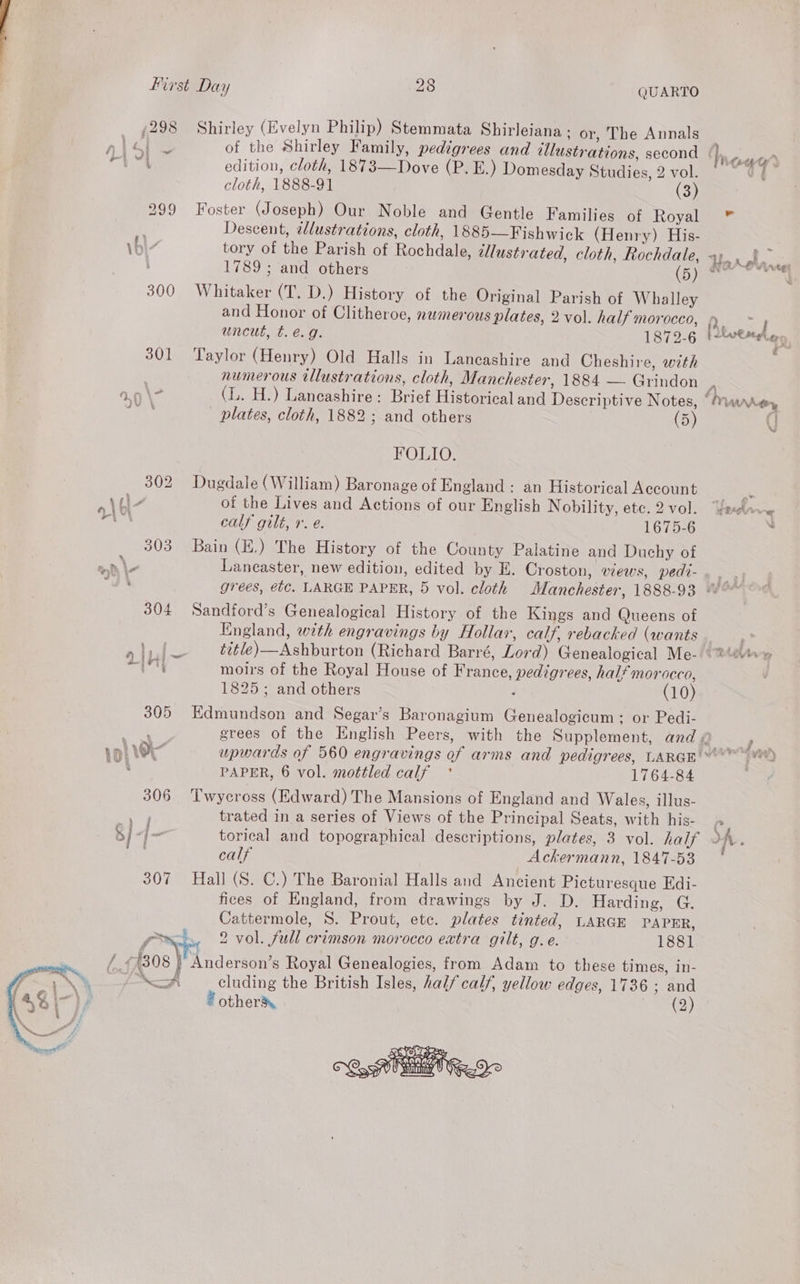 First Day 28 QUARTO
298 Shirley (Evelyn Philip) Stemmata Shirleiana; or, The Annals
of the Shirley Family, pedigrees and illustrations, second
edition, cloth, 1873—Dove (P. E.) Domesday Studies, 2 vol.
cloth, 1888-91 (3)
299 Foster (Joseph) Our Noble and Gentle Families of Royal
Descent, illustrations, cloth, 1885—Fishwick (Henry) His-
tory of the Parish of Rochdale, illustrated, cloth, Rochdale,
1789; and others (5)
300 Whitaker (T. D.) History of the Original Parish of Whalley
and Honor of Clitheroe, numerous plates, 2 vol. half morocco,
uncut, t. e. g. 1872-6
301 Taylor (Henry) Old Halls in Lancashire and Cheshire, with
numerous illustrations, cloth, Manchester, 1884 — Grindon
(L. H.) Lancashire: Brief Historical and Descriptive Notes,
plates, cloth, 1882; and others (5)
FOLIO.
302 Dugdale (William) Baronage of England: an Historical Account
of the Lives and Actions of our English Nobility, etc. 2 vol.
calf gilt, r. e. 1675-6
303 Bain (E.) The History of the County Palatine and Duchy of
Lancaster, new edition, edited by E. Croston, views, pedi-
grees, etc. LARGE PAPER, 5 vol. cloth Manchester, 1888-93
304 Sandford's Genealogical History of the Kings and Queens of
England, with engravings by Hollar, calf, rebacked (wants
title)—Ashburton (Richard Barré, Lord) Genealogical Me-
moirs of the Royal House of France, pedigrees, half morocco,
1825; and others (10)
305 Edmundson and Segar's Baronagium Genealogicum; or Pedi-
grees of the English Peers, with the Supplement, and
upwards of 560 engravings of arms and pedigrees, LARGE
PAPER, 6 vol. mottled calf 1764-84
306 Twycross (Edward) The Mansions of England and Wales, illus-
trated in a series of Views of the Principal Seats, with his-
torical and topographical descriptions, plates, 3 vol. half
calf Ackermann, 1847-53
307 Hall (S. C.) The Baronial Halls and Ancient Picturesque Edi-
fices of England, from drawings by J. D. Harding, G.
Cattermole, S. Prout, etc. plates tinted, LARGE PAPER,
2 vol. full crimson morocco extra gilt, g. e. 1881
308 Anderson's Royal Genealogies, from Adam to these times, in-
cluding the British Isles, half calf, yellow edges, 1736; and
others (2)